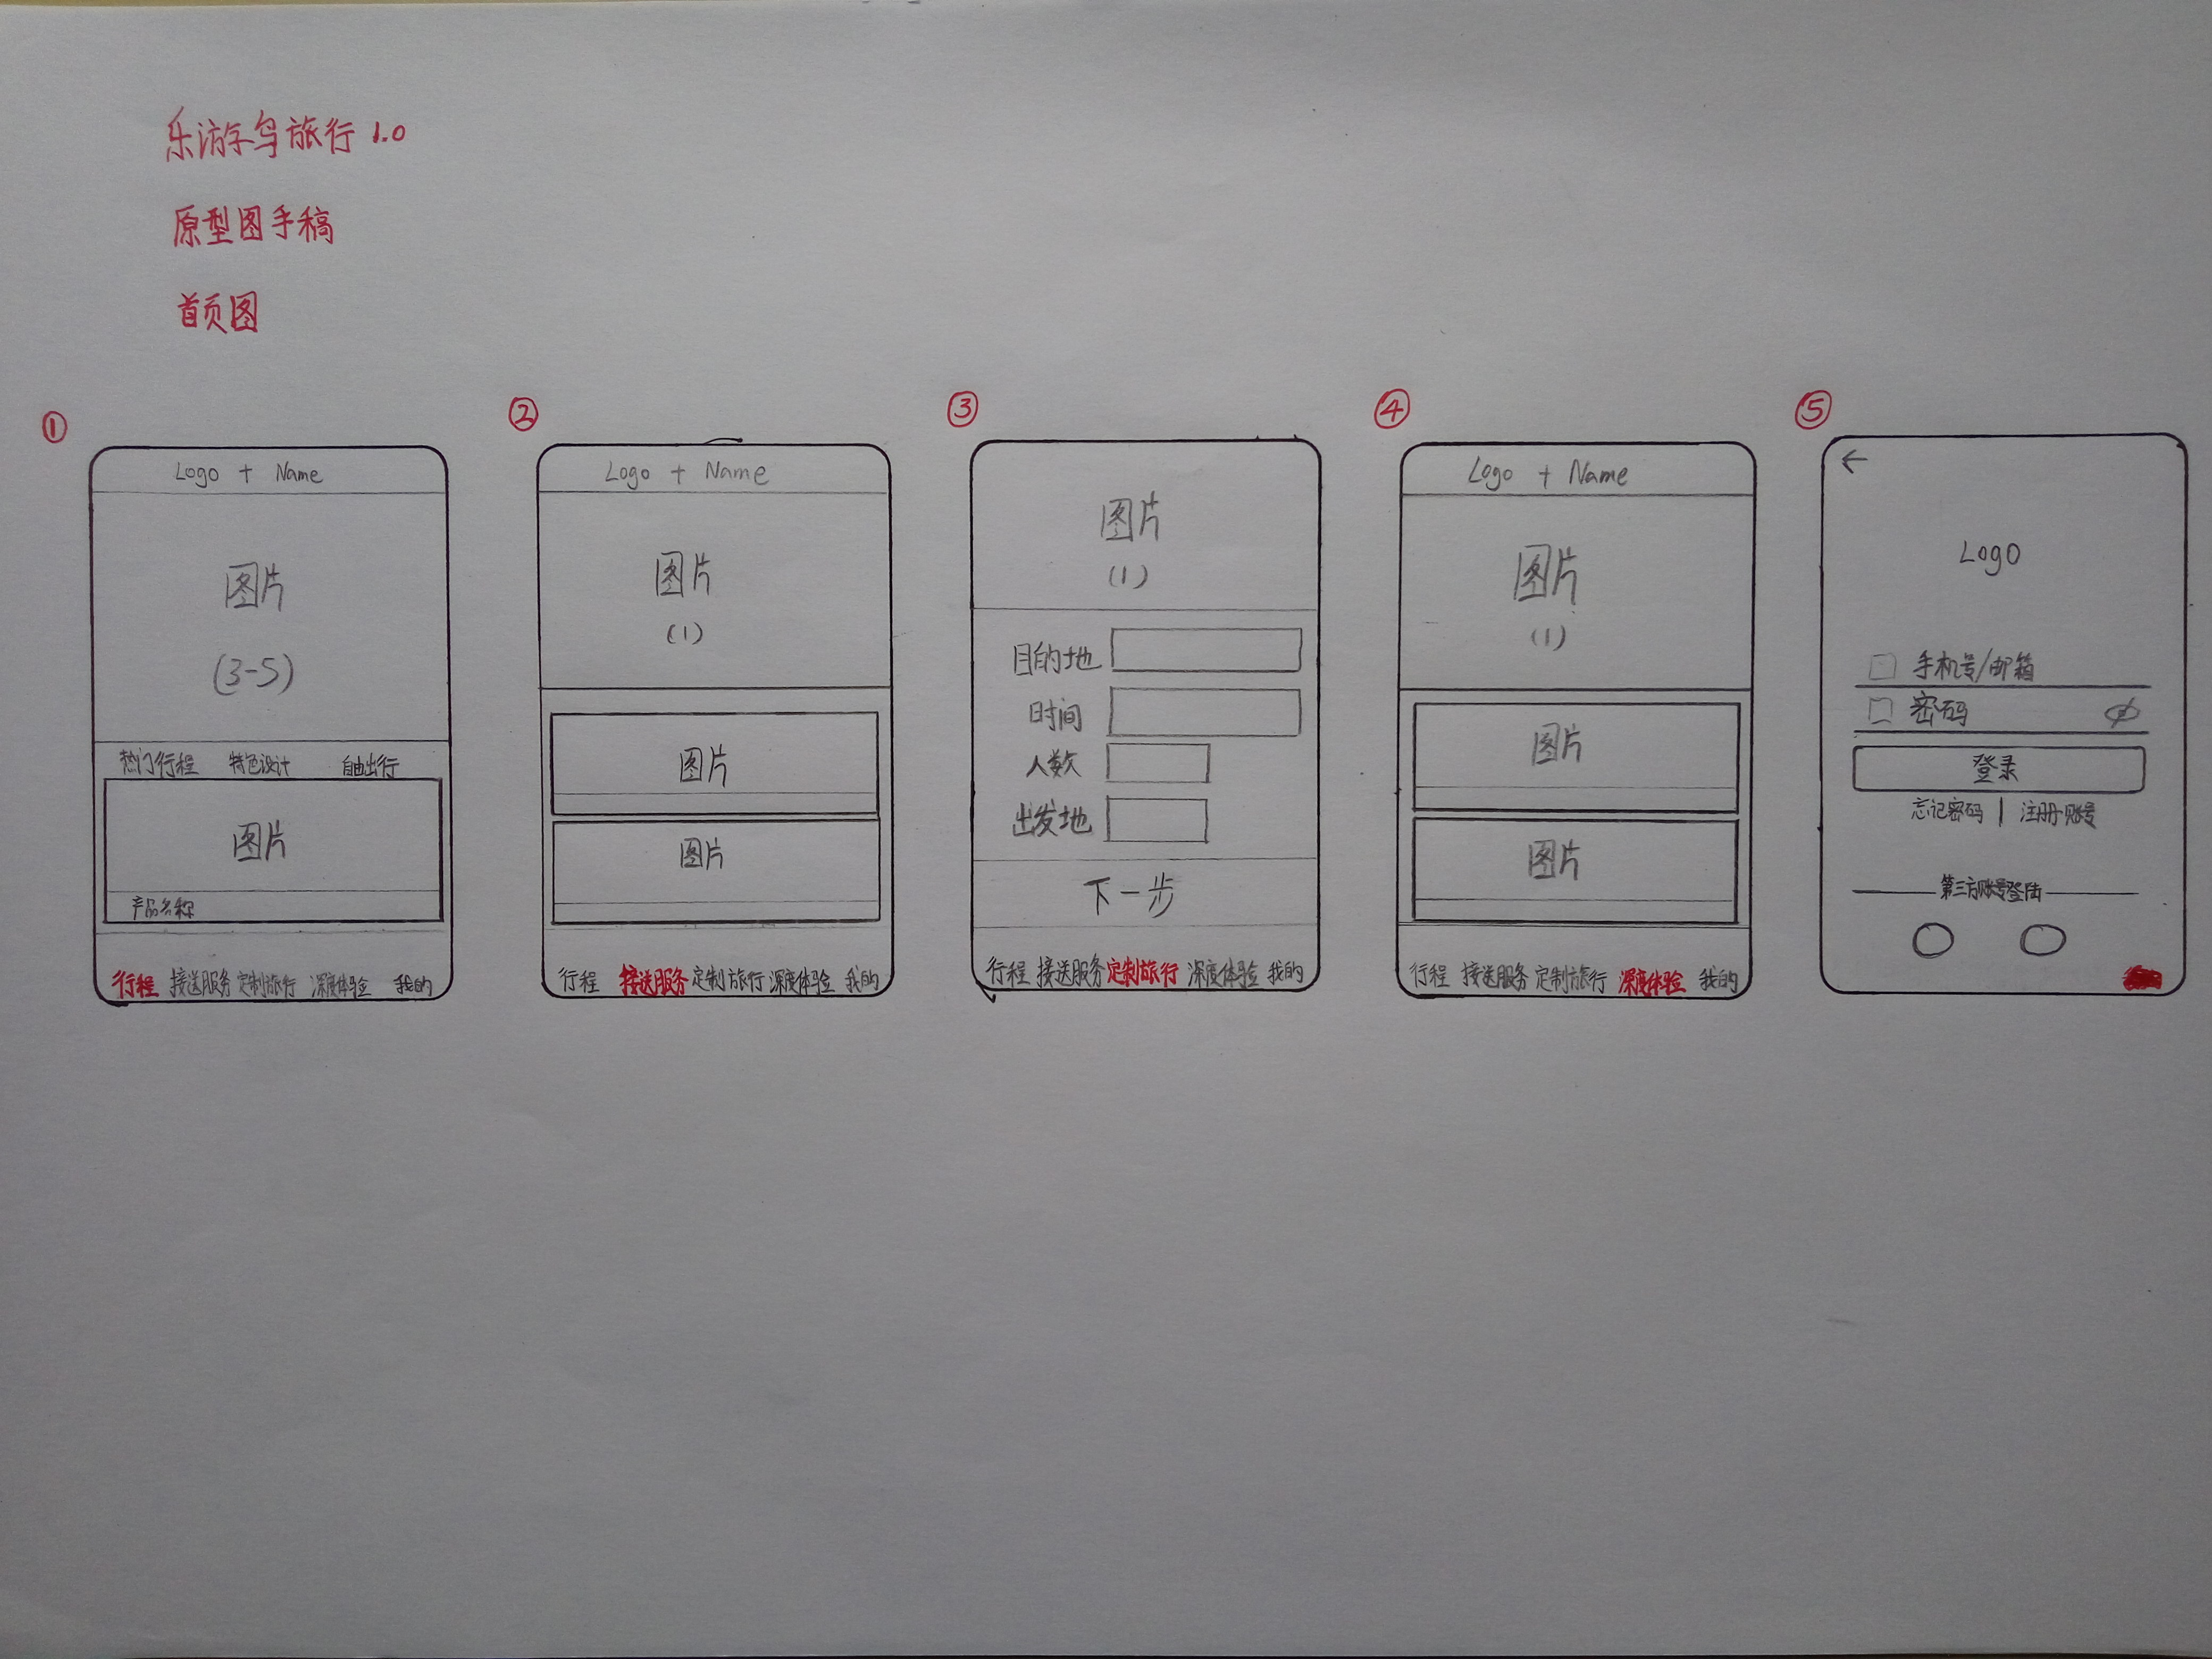 乐游鸟旅行 1.0
原型图手稿
首页图
①
Logo + Name
图片
(3-5)
热门行程 特色设计 自由出行
图片
产品名称
行程 接送服务 定制旅行 深度体验 我的
②
Logo + Name
图片
(1)
图片
图片
行程 接送服务 定制旅行 深度体验 我的
③
图片
(1)
目的地
时间
人数
出发地
下一步
行程 接送服务 定制旅行 深度体验 我的
④
Logo + Name
图片
(1)
图片
图片
行程 接送服务 定制旅行 深度体验 我的
⑤
←
Logo
手机号/邮箱
密码
登录
忘记密码 | 注册账号
第三方账号登陆